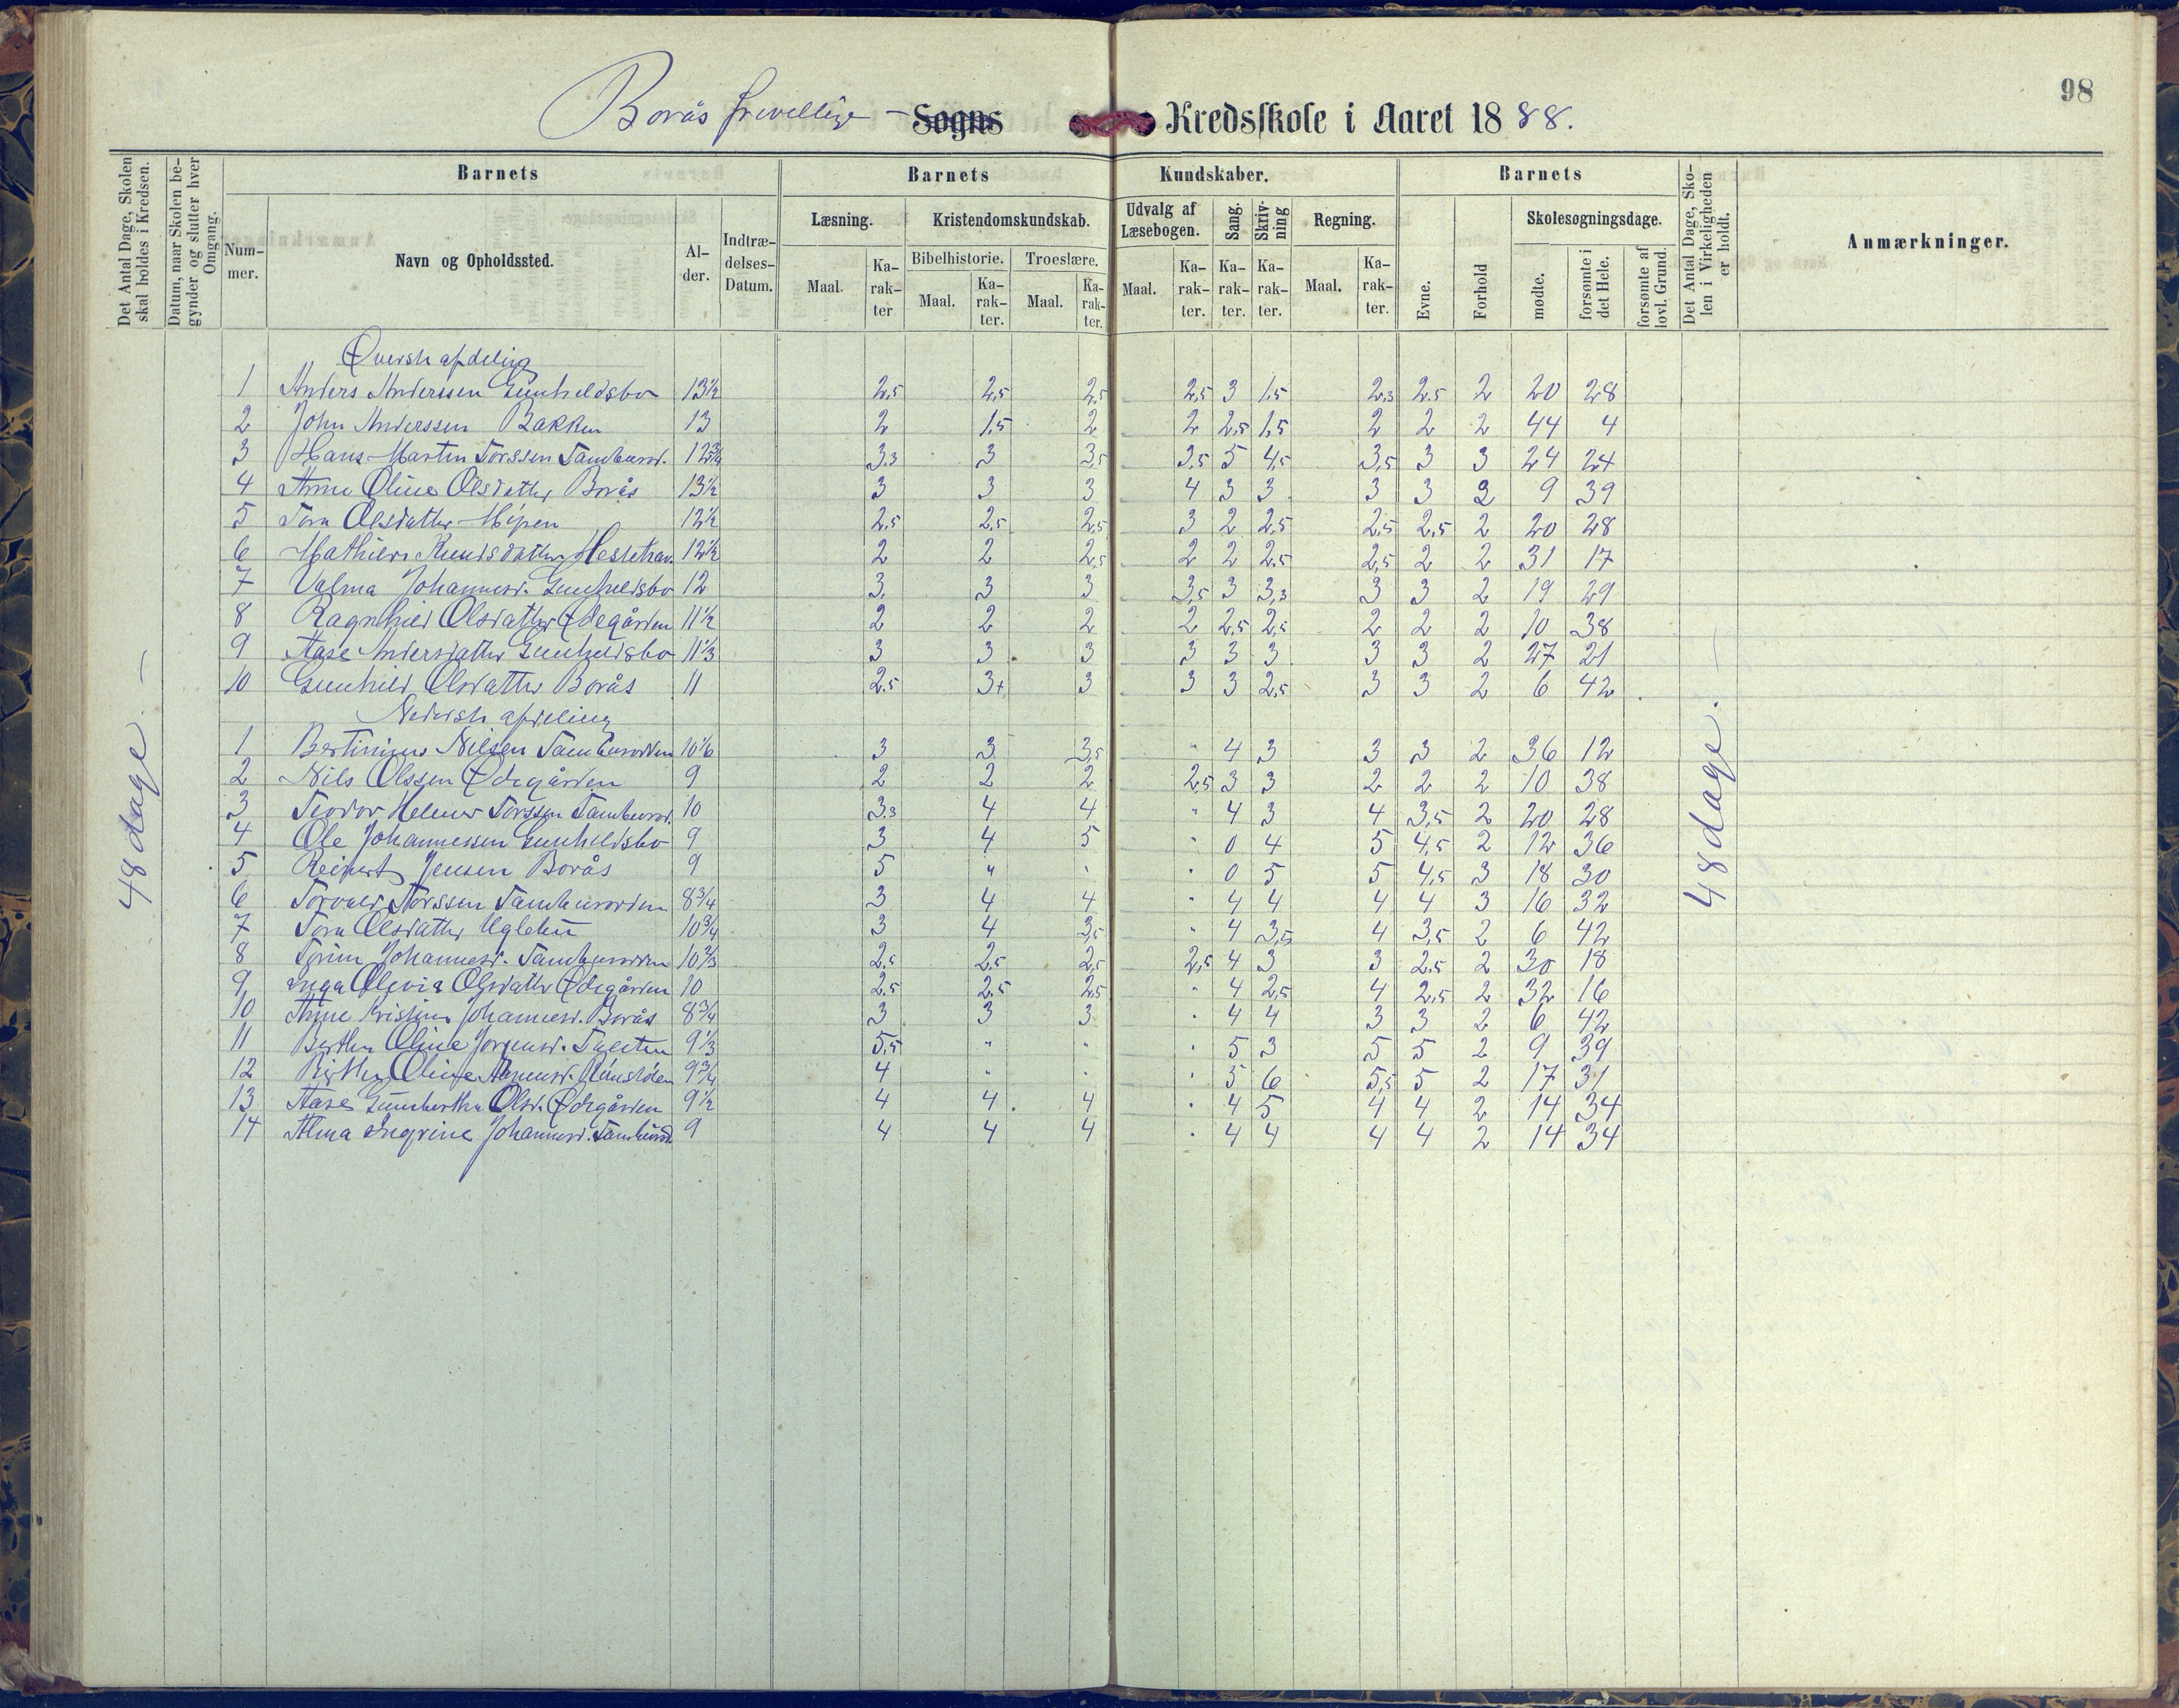 98
Borås frivellige - Sogns Kredsskole i Aaret 1888.
Det Antal Dage, Skolen skal holdes i Kredsen.
Datum, naar Skolen begynder og slutter hver Omgang.
Barnets
Barnets Kundskaber.
Barnets
Det Antal Dage, Skolen i Virkeligheden er holdt.
Anmærkninger.
Nummer.
Navn og Opholdssted.
Alder.
Indtrædelses-Datum.
Læsning.
Kristendomskundskab.
Udvalg af Læsebogen.
Sang.
Skrivning
Regning.
Evne.
Forhold
Skolesøgningsdage.
Bibelhistorie.
Troeslære.
Maal. Karakter
Maal. Karakter.
Maal. Karakter.
Maal. Karakter.
Karakter.
Karakter.
Maal. Karakter.
mødte.
forsømte i det Hele.
forsømte af lovl. Grund.
48 dage. —
48 dage. —
Øversh afdeling
1 Anders Anderssen Gunheldsbo 13½ 2,5 2,5 2,5 2,5 3 1,5 2,3 2,5 2 20 28
2 John Anderssen Bakken 13 2 1,5 2 2 2,5 1,5 2 2 2 44 4
3 Hans Martin Torssen 12¾ 3,3 3 3,5 3,5 5 4,5 3,5 3 3 24 24
4 Anne Oline Olsdatter Borås 13½ 3 3 3 4 3 3 3 3 2 9 39
5 Tora Olsdatter 12½ 2,5 2,5 2,5 3 2 2,5 2,5 2,5 2 20 28
6 Knudsdatter 12½ 2 2 2,5 2 2 2,5 2,5 2 2 31 17
7 Valma Johannesd. Gunheldsbo 12 3, 3 3 3,5 3 3,3 3 3 2 19 29
8 Ragnhild Olsdatter Ødegården 11½ 2 2 2 2 2,5 2,5 2 2 2 10 38
9 Aase Andersdatter Gunheldsbo 11⅓ 3 3 3 3 3 3 3 3 2 27 21
10 Gunhild Olsdatter Borås 11 2,5 3+ 3 3 3 2,5 3 3 2 6 42
Nedersh afdeling
1 Nilsen 10⅙ 3 3 3,5 " 4 3 3 3 2 36 12
2 Nils Olssen Ødegården 9 2 2 2 2,5 3 3 2 2 2 10 38
3 Teodor Helmer Torssen 10 3,3 4 4 " 4 3 4 3,5 2 20 28
4 Ole Johannessen Gunheldsbo 9 3 4 5 " 0 4 5 4,5 2 12 36
5 Reinert Jensen Borås 9 5 " " " 0 5 5 4,5 3 18 30
6 Torvald Torssen 8¾ 3 4 4 " 4 4 4 4 3 16 32
7 Tora Olsdatter Uglebu 10¾ 3 4 3,5 " 4 3,5 4 3,5 2 6 42
8 Johannesd. 10⅔ 2,5 2,5 2,5 2,5 4 3 3 2,5 2 30 18
9 Inga Olevia Olsdatter Ødegården 10 2,5 2,5 2,5 " 4 2,5 4 2,5 2 32 16
10 Anne Kristine Johannesd. Borås 8¾ 3 3 3 " 4 4 3 3 2 6 42
11 Berthe Oline Jørgensd. 9⅓ 5,5 " " " 5 3 5 5 2 9 39
12 Oline 9¾ 4 " " " 5 6 5,5 5 2 17 31
13 Aase Gunbertha Olsd. Ødegården 9½ 4 4 4 " 4 5 4 4 2 14 34
14 Alma Ingrine Johannesd. 9 4 4 4 " 4 4 4 4 2 14 34